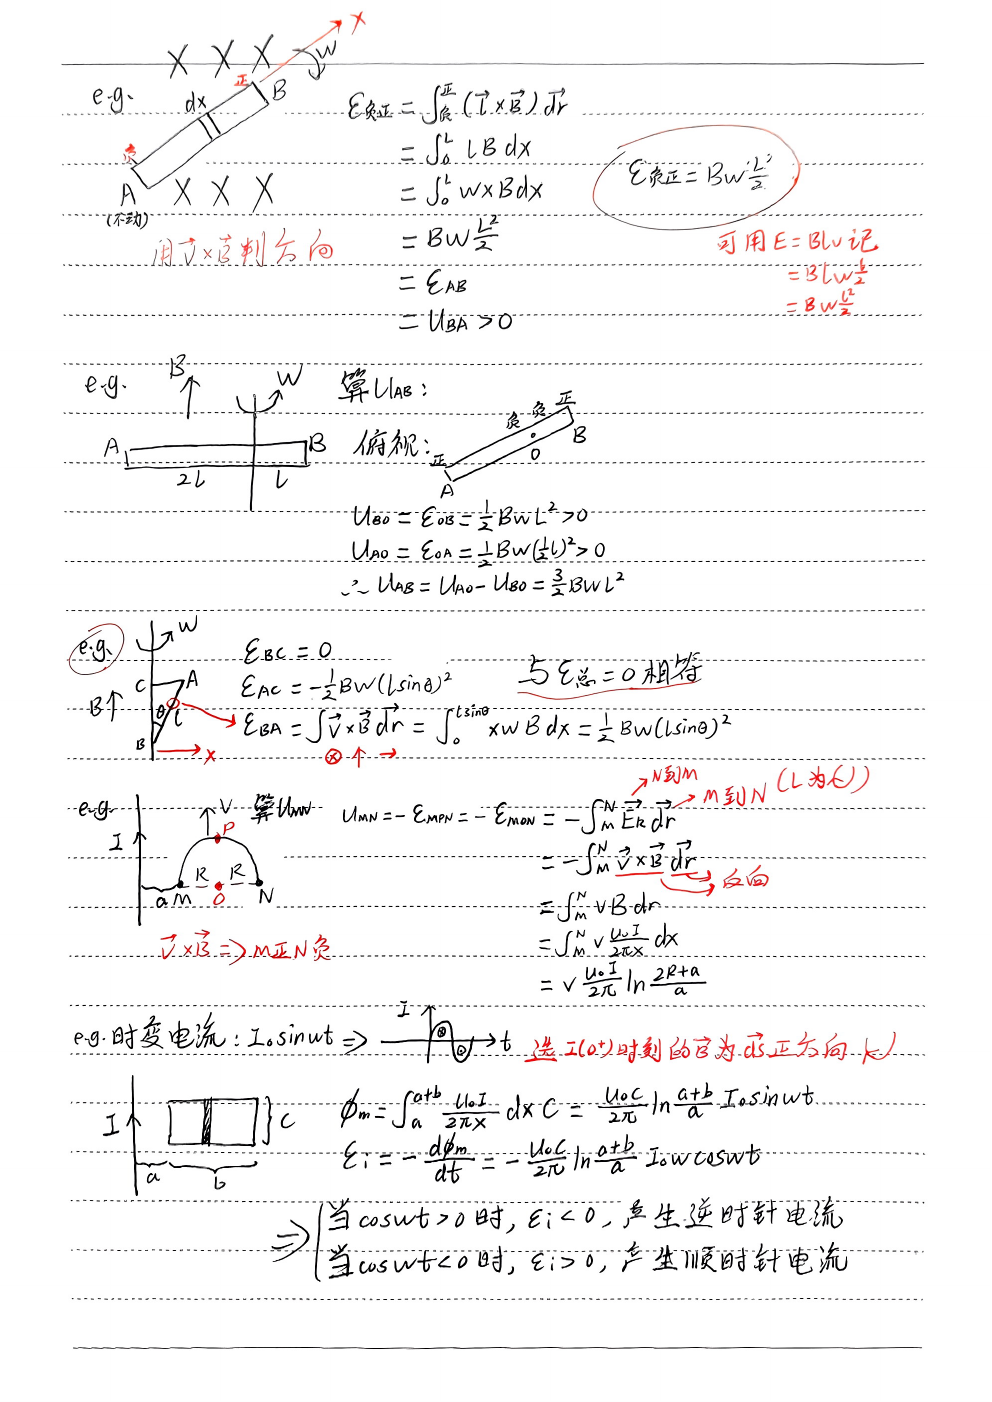 X X X X W
e.g. dx 正 B
负 A (不动) X X X
ε负正 = ∫负正 (v⃗×B⃗) dr⃗
= ∫₀ᴸ lB dx
= ∫₀ᴸ wxBdx
= Bw L²/2
= εAB
= UBA > 0
ε负正 = Bw L²/2
用v⃗×B⃗判方向
可用E=BLv记
= BLw L/2
= Bw L²/2
e.g. B W 算UAB:
A B 2L L
俯视: 正 负 负 正 A O B
UBO = εOB = ½BwL² > 0
UAO = εOA = ½Bw(½L)² > 0
∴ UAB = UAO - UBO = 3/2 BWL²
e.g. W C A B θ L B x
εBC = 0
εAC = -½BW(Lsinθ)²
εBA = ∫v⃗×B⃗ dr⃗ = ∫₀^Lsinθ xwBdx = ½BW(Lsinθ)²
⊗ ↑ →
与ε总=0相符
e.g. I V P R R a M O N 算UMN
UMN = -εMPN = -εMON = -∫MN E⃗k dr⃗
N到M
M到N (L为←))
= -∫MN v⃗×B⃗ dr⃗
反向
= ∫MN vB dr
= ∫MN v u₀I/2πx dx
= v u₀I/2π ln 2R+a/a
v⃗×B⃗ => M正N负
e.g. 时变电流: I₀sinwt => I t
选I(0+)时刻的B⃗为ds⃗正方向
I a b C
ϕm = ∫ₐ^a+b u₀I/2πx dx C = u₀C/2π ln a+b/a I₀sinwt
εi = - dϕm/dt = - u₀C/2π ln a+b/a I₀wcoswt
=> 当coswt>0时, εi<0, 产生逆时针电流
当coswt<0时, εi>0, 产生顺时针电流